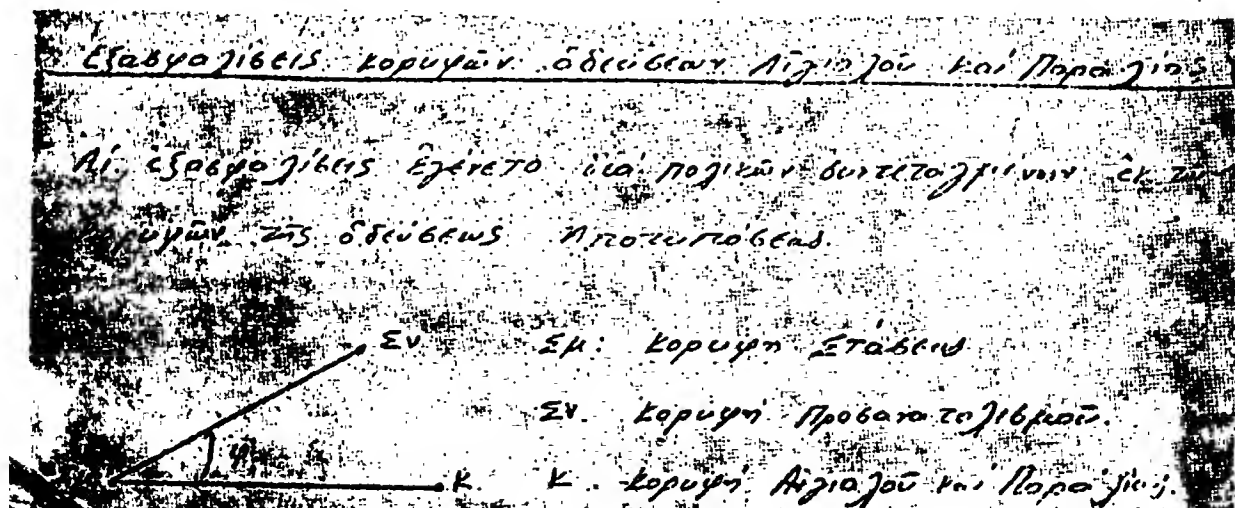 Ἐξασφαλίσεις κορυφῶν ὁδεύσεων Αἰγιαλοῦ καί Παραλίας
Αἱ ἐξασφαλίσεις ἐγένετο διά πολικῶν συντεταγμένων ἐκ τῶν
κορυφῶν τῆς ὁδεύσεως ἀποτυπώσεως.
Σν Σμ: κορυφή Στάσεως
Σν. κορυφή Προσανατολισμοῦ.
φ
Κ. Κ. κορυφή Αἰγιαλοῦ καί Παραλίας.